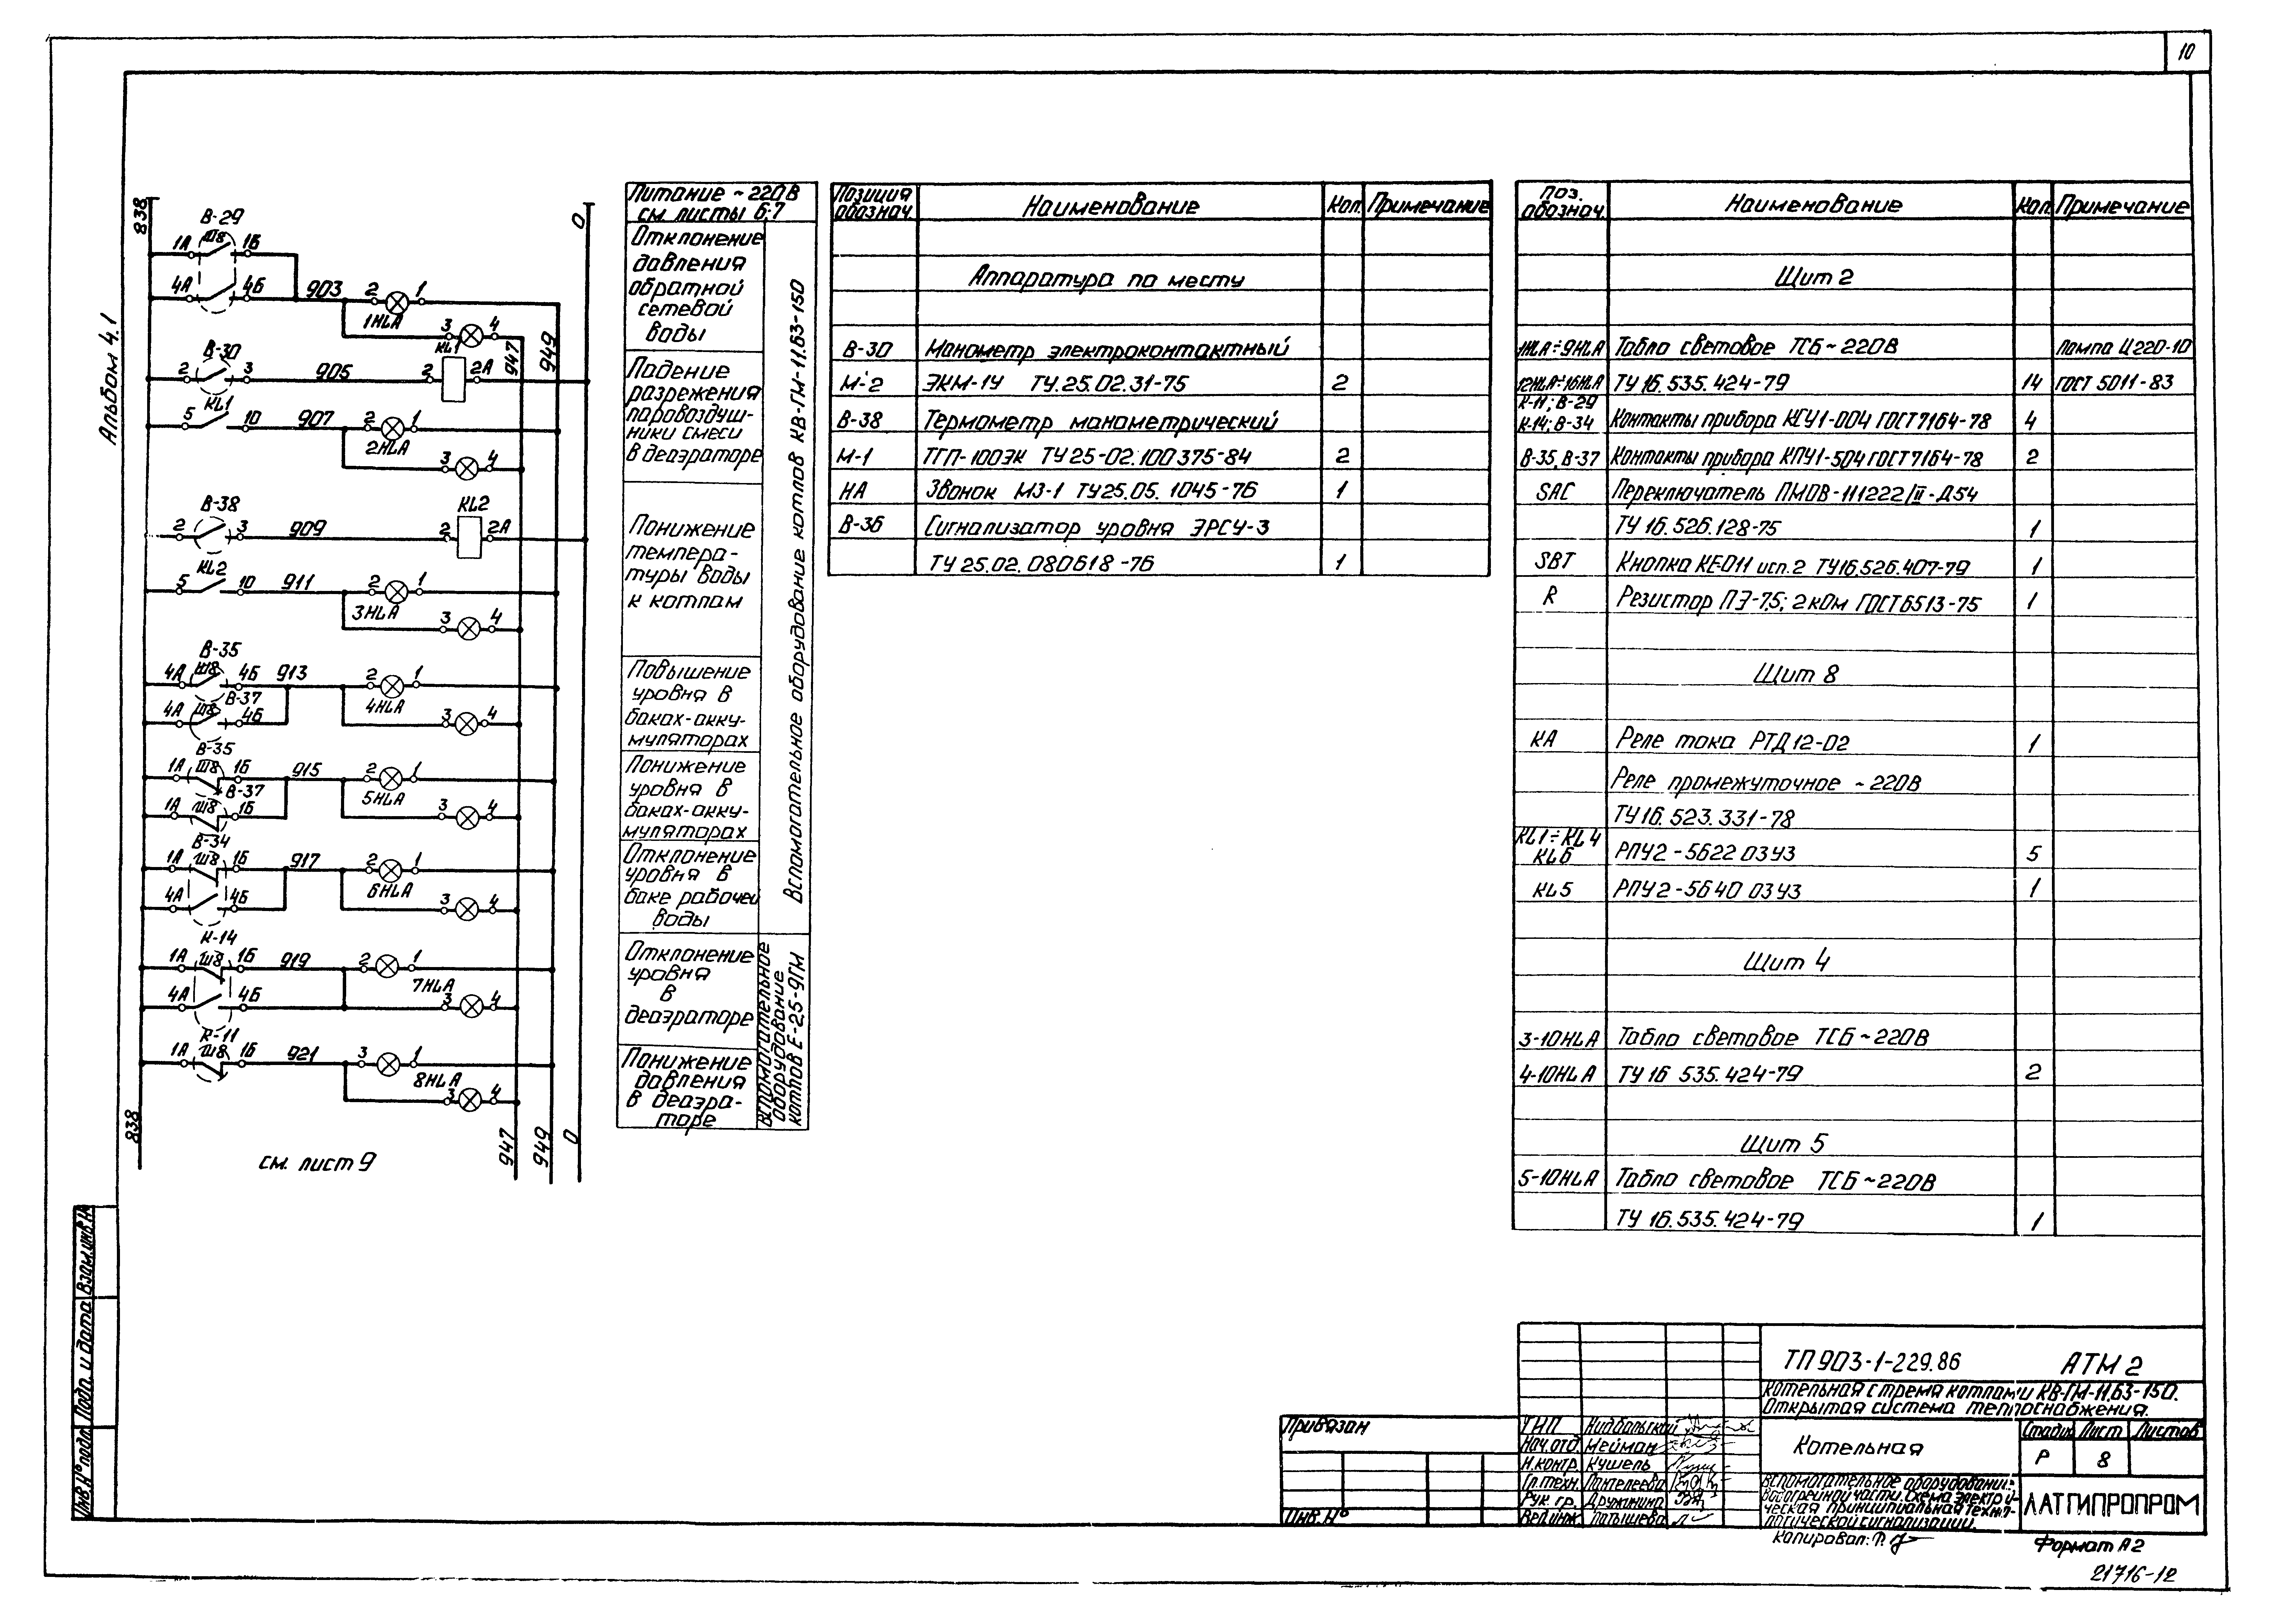 10
Альбом 4.1
838
0
В-29
1А Ш8 1Б
4А 4Б 903 2 1
1HLA 3 4
947
949
В-30
2 3 905 2 KL1 2А
KL1
5 10 907 2 1
2HLA
3 4
В-38
2 3 909 2 KL2 2А
KL2
5 10 911 2 1
3HLA
3 4
В-35
4А Ш8 4Б 913 2 1
В-37
4HLA
4А Ш8 4Б 3 4
В-35
1А Ш8 1Б 915 2 1
В-37
5HLA
1А Ш8 1Б 3 4
В-34
1А Ш8 1Б 917 2 1
6HLA
4А 4Б 3 4
К-14
1А Ш8 1Б 919 2 1
7HLA
4А 4Б 3 4
К-11
1А Ш8 1Б 921 3 1
8HLA
3 4
838
947
949
0
см. лист 9
Питание ~220В
см. листы 6;7
Отклонение
давления
обратной
сетевой
воды
Падение
разрежения
паровоздуш-
ники смеси
в деаэраторе
Понижение
темпера-
туры воды
к котлам
Повышение
уровня в
баках-акку-
муляторах
Понижение
уровня в
баках-акку-
муляторах
Отклонение
уровня в
баке рабочей
воды
Отклонение
уровня
в
деаэраторе
Понижение
давления
в деаэра-
торе
Вспомогательное оборудование котлов КВ-ГМ-11.63-150
Вспомогательное
оборудование
котлов Е-25-9ГМ
Позиция обознач. Наименование Кол. Примечание
Аппаратура по месту
В-30 Манометр электроконтактный
М-2 ЭКМ-1У ТУ.25.02.31-75 2
В-38 Термометр манометрический
М-1 ТГП-100ЭК ТУ25-02.100375-84 2
НА Звонок МЗ-1 ТУ25.05.1045-76 1
В-36 Сигнализатор уровня ЭРСУ-3
ТУ25.02.080618-76 1
Поз. обознач. Наименование Кол. Примечание
Щит 2
1HLA÷9HLA Табло световое ТСБ~220В Лампа Ц220-10
12HLA÷16HLA ТУ16.535.424-79 14 ГОСТ 5011-83
К-11; В-29
К-14; В-34 Контакты прибора КСУ1-004 ГОСТ7164-78 4
В-35, В-37 Контакты прибора КПУ1-504 ГОСТ7164-78 2
SAC Переключатель ПМОВ-111222/II-Д54
ТУ16.526.128-75 1
SBT Кнопка КЕ-011 исп.2 ТУ16.526.407-79 1
R Резистор ПЭ-7,5; 2кОм ГОСТ6513-75 1
Щит 8
КА Реле тока РТД12-02 1
Реле промежуточное ~220В
ТУ16.523.331-78
KL1÷KL4
KL6 РПУ2-562203У3 5
KL5 РПУ2-564003У3 1
Щит 4
3-10HLA Табло световое ТСБ~220В
4-10HLA ТУ16 535.424-79 2
Щит 5
5-10HLA Табло световое ТСБ~220В
ТУ16.535.424-79 1
Инв.№ подл. Подп. и дата Взам.инв.№
Привязан
Инв.№
ГИП Нидбальский
Нач.отд. Мейман
Н.контр. Кушель
Гл.техн. Пантелеева
Рук. гр. Дружинина
Вед.инж. Латышева
ТП903-1-229.86 АТМ2
Котельная с тремя котлами КВ-ГМ-11.63-150.
Открытая система теплоснабжения.
Котельная
Стадия Лист Листов
Р 8
Вспомогательное оборудование
водогрейной части. Схема электри-
ческая принципиальная техно-
логической сигнализации.
ЛАТГИПРОПРОМ
Копировал:
Формат А2
21716-12